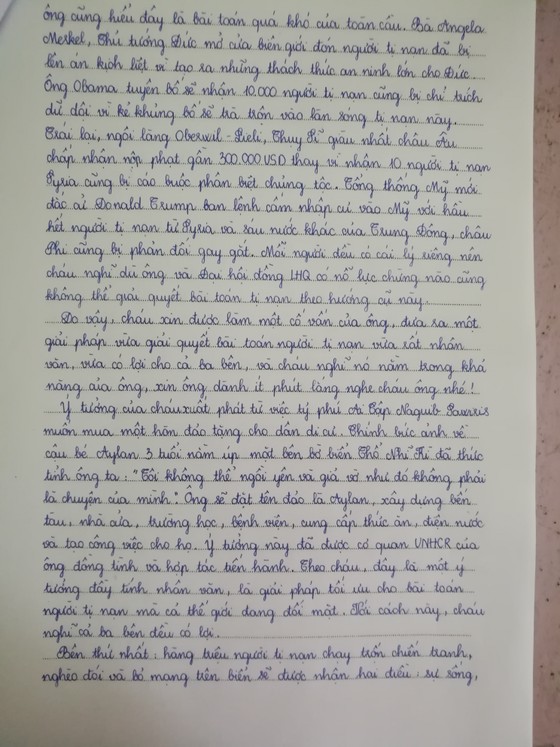 ông cũng hiểu đây là bài toán quá khó của toàn cầu. Bà Angela
Merkel, Thủ tướng Đức mở cửa biên giới đón người tị nạn đã bị
lên án kịch liệt vì tạo ra những thách thức an ninh lớn cho Đức.
Ông Obama tuyên bố sẽ nhận 10.000 người tị nạn cũng bị chỉ trích
dữ dội vì kẻ khủng bố sẽ trà trộn vào làn sóng tị nạn này.
Trái lại, ngôi làng Oberwil-Lieli, Thụy Sĩ giàu nhất châu Âu
chấp nhận nộp phạt gần 300.000 USD thay vì nhận 10 người tị nạn
Syria cũng bị cáo buộc phân biệt chủng tộc. Tổng thống Mỹ mới
đắc cử Donald Trump ban lệnh cấm nhập cư vào Mỹ với hầu
hết người tị nạn từ Syria và sau nước khác của Trung Đông, châu
Phi cũng bị phản đối gay gắt. Mỗi người đều có cái lý riêng nên
cháu nghĩ dù ông và Đại hội đồng LHQ có nỗ lực chừng nào cũng
không thể giải quyết bài toán tị nạn theo hướng cũ này.
Do vậy, cháu xin được làm một cố vấn của ông, đưa ra một
giải pháp vừa giải quyết bài toán người tị nạn vừa rất nhân
văn, vừa có lợi cho cả ba bên, và cháu nghĩ nó nằm trong khả
năng của ông, xin ông dành ít phút lắng nghe cháu ông nhé!
Ý tưởng của cháu xuất phát từ việc tỷ phú Ai Cập Naguib Sawiris
muốn mua một hòn đảo tặng cho dân di cư. Chính bức ảnh về
cậu bé Aylan 3 tuổi nằm úp mặt bên bờ biển Thổ Nhĩ Kì đã thức
tỉnh ông ta: "Tôi không thể ngồi yên và giả vờ như đó không phải
là chuyện của mình". Ông sẽ đặt tên đảo là Aylan, xây dựng bến
tàu, nhà cửa, trường học, bệnh viện, cung cấp thức ăn, điện nước
và tạo công việc cho họ. Ý tưởng này đã được cơ quan UNHCR của
ông đồng tình và hợp tác tiến hành. Theo cháu, đây là một ý
tưởng đầy tính nhân văn, là giải pháp tối ưu cho bài toán
người tị nạn mà cả thế giới đang đối mặt. Với cách này, cháu
nghĩ cả ba bên đều có lợi.
Bên thứ nhất: hàng triệu người tị nạn chạy trốn chiến tranh,
nghèo đói và bỏ mạng trên biển sẽ được nhận hai điều: sự sống,